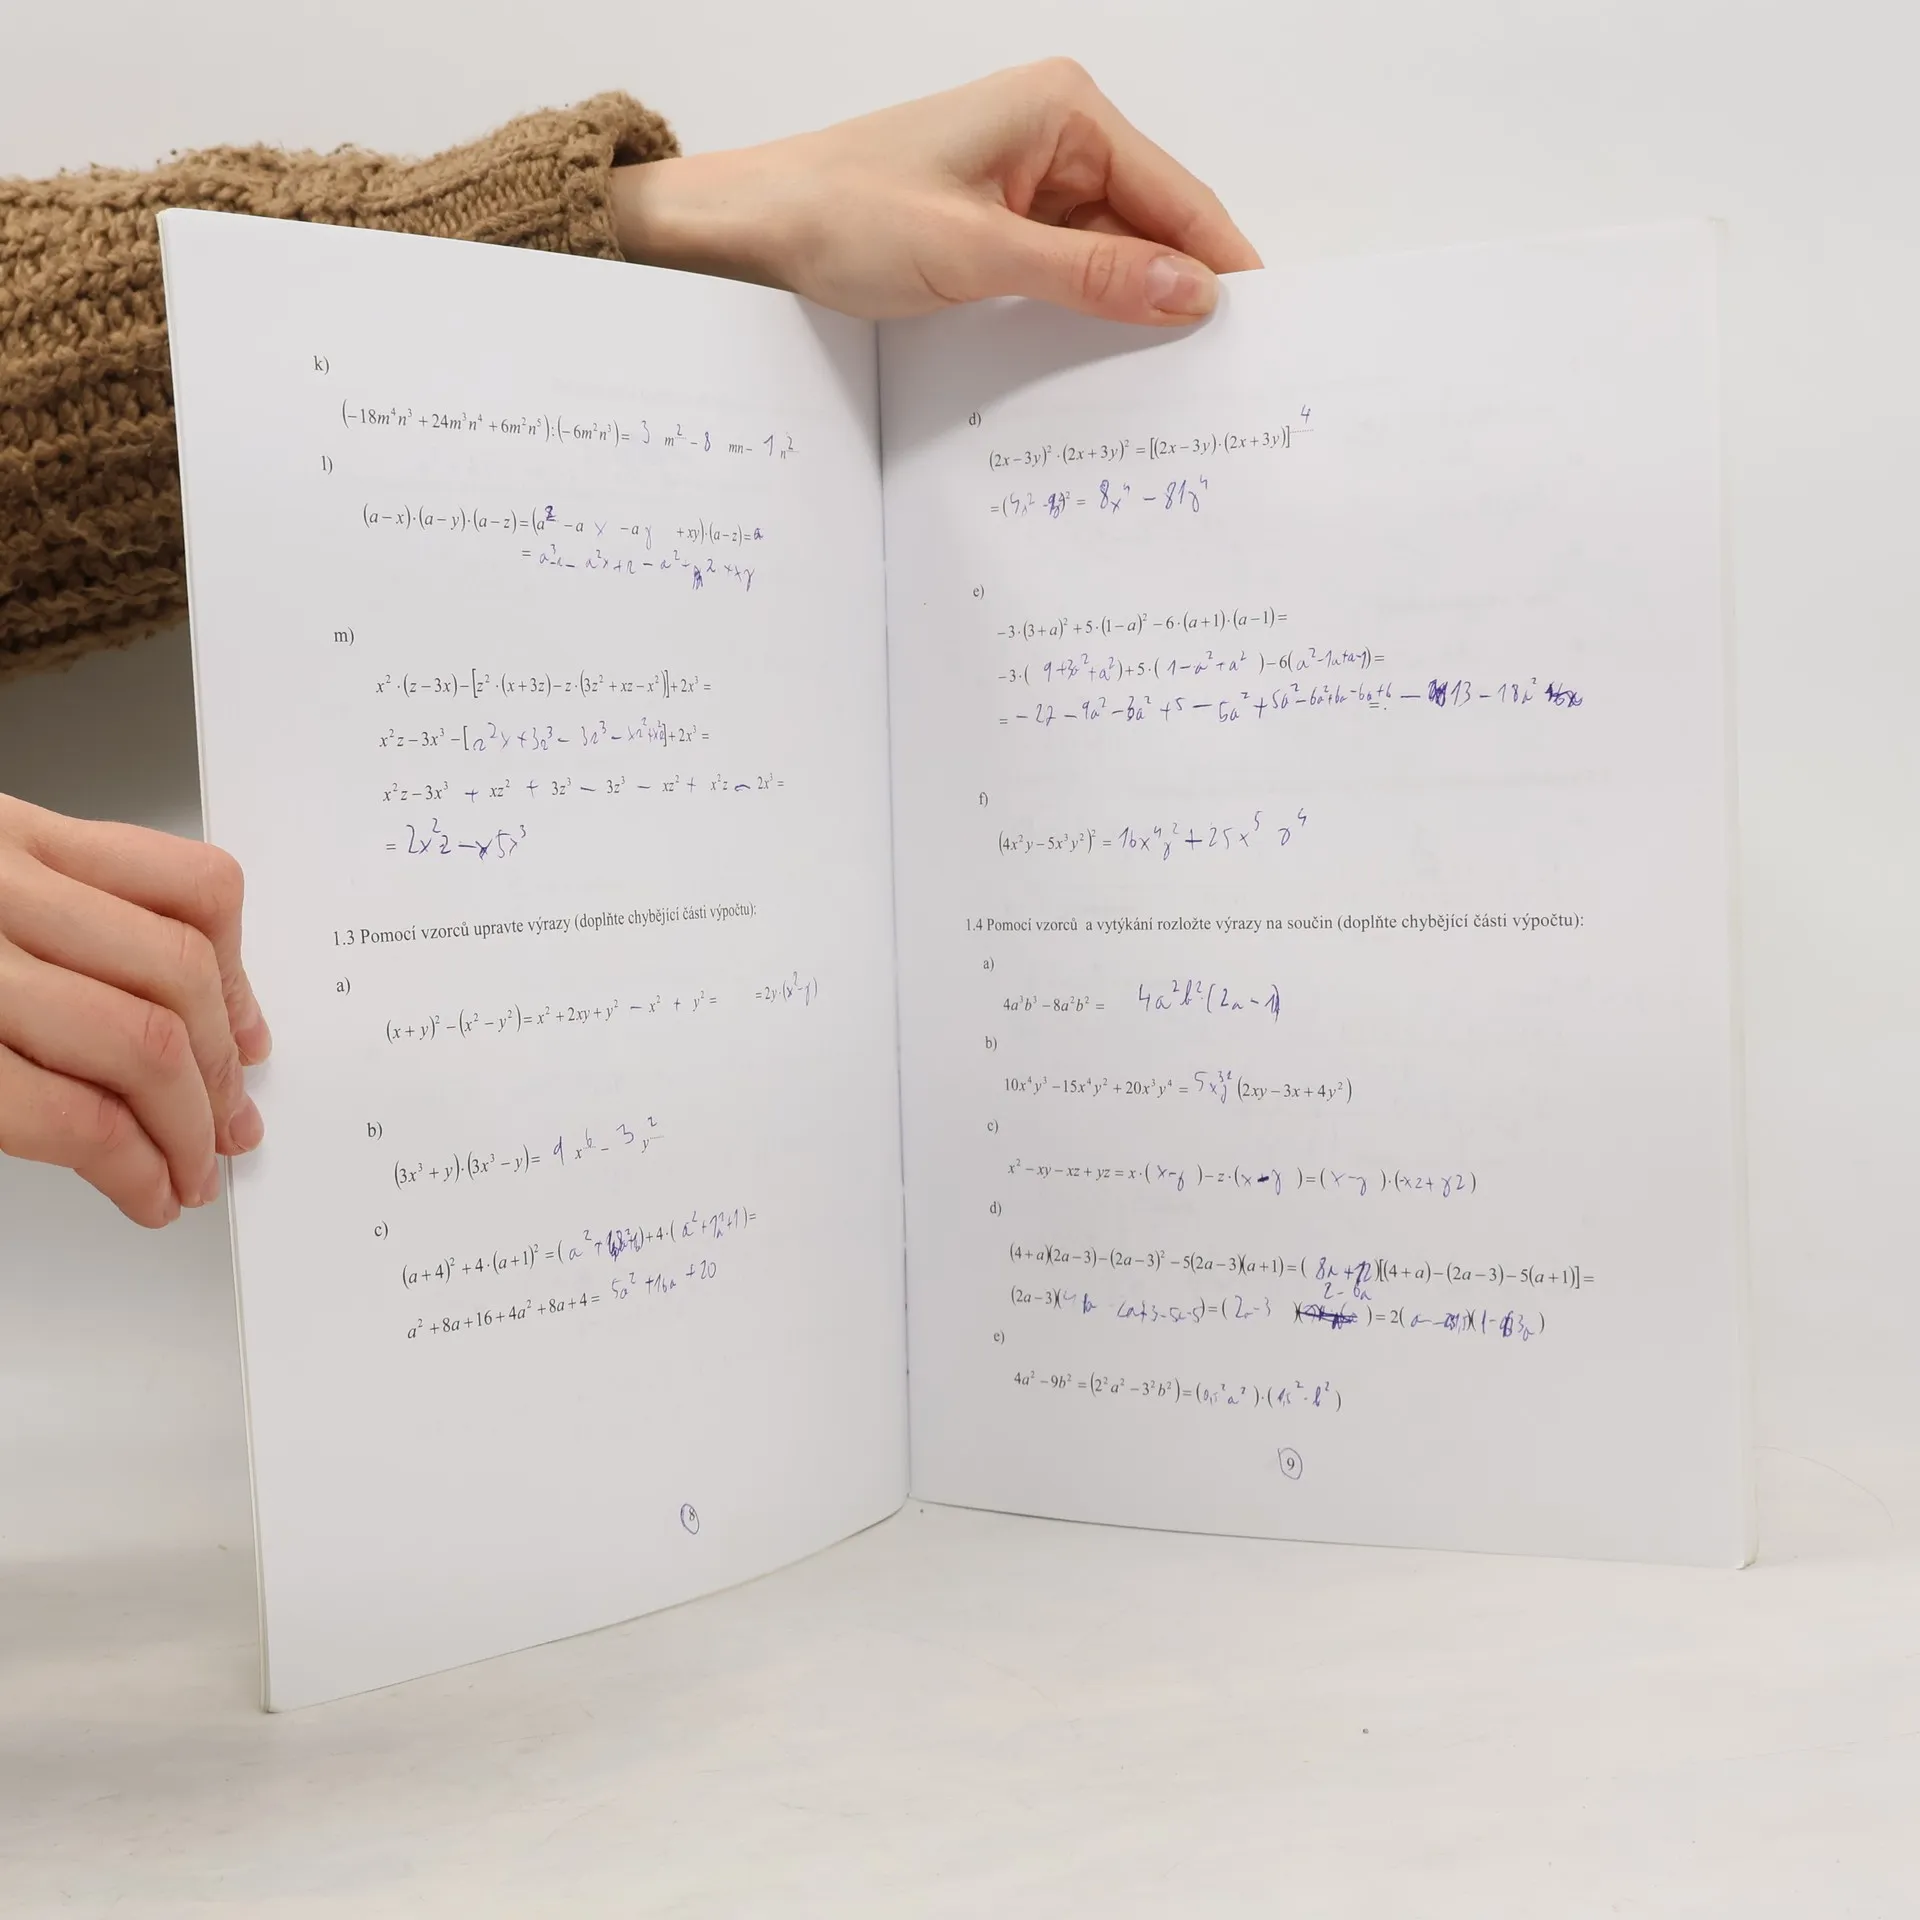 k)
(−18m⁴n³ + 24m³n⁴ + 6m²n⁵):(−6m²n³) = 3 m² − 8 mn − 1 n²
l)
(a−x)·(a−y)·(a−z) = (a² − a x − a y + xy)·(a−z) =
m)
x²·(z−3x)−[z²·(x+3z)−z·(3z²+xz−x²)]+2x³ =
x²z−3x³−[z²x+3z³−3z³− ]+2x³ =
x²z−3x³ + xz² + 3z³ − 3z³ − xz² + x²z − 2x³ =
= 2x²z − 5x³
1.3 Pomocí vzorců upravte výrazy (doplňte chybějící části výpočtu):
a)
(x+y)²−(x²−y²) = x²+2xy+y² − x² + y² = =2y·(x²−y)
b)
(3x³+y)·(3x³−y) = 9 x⁶ − 3 y²
c)
(a+4)²+4·(a+1)² = (a²+ )+4·(a²+ +1) =
a²+8a+16+4a²+8a+4 = 5a² +16a +20
8
d)
(2x−3y)²·(2x+3y)² = [(2x−3y)·(2x+3y)]⁴
=(4x² )² = 8x⁴ − 81y⁴
e)
−3·(3+a)²+5·(1−a)²−6·(a+1)·(a−1) =
−3·( 9+3a²+a²)+5·( 1−a²+a² )−6(a²−1a+a−1) =
= −27 −9a² −3a² +5 − 5a² +5a² −6a²+6a−6a+6 = − 13 − 18a²
f)
(4x²y−5x³y²)² = 16x⁴y² + 25x⁵ y⁴
1.4 Pomocí vzorců a vytýkání rozložte výrazy na součin (doplňte chybějící části výpočtu):
a)
4a³b³−8a²b² = 4a²b²·(2a−1)
b)
10x⁴y³−15x⁴y²+20x³y⁴ = 5x³y² (2xy−3x+4y²)
c)
x²−xy−xz+yz = x·( x−y )−z·(x−y )=( x−y )·(−xz+yz)
d)
(4+a)(2a−3)−(2a−3)²−5(2a−3)(a+1) = ( 8a+12)[(4+a)−(2a−3)−5(a+1)] =
2−6a
(2a−3)( −2a+3−5a−5) = ( 2a−3 )( ) = 2( a− )(1− 3a)
e)
4a²−9b² = (2²a²−3²b²) = ( a² )·( b² )
9